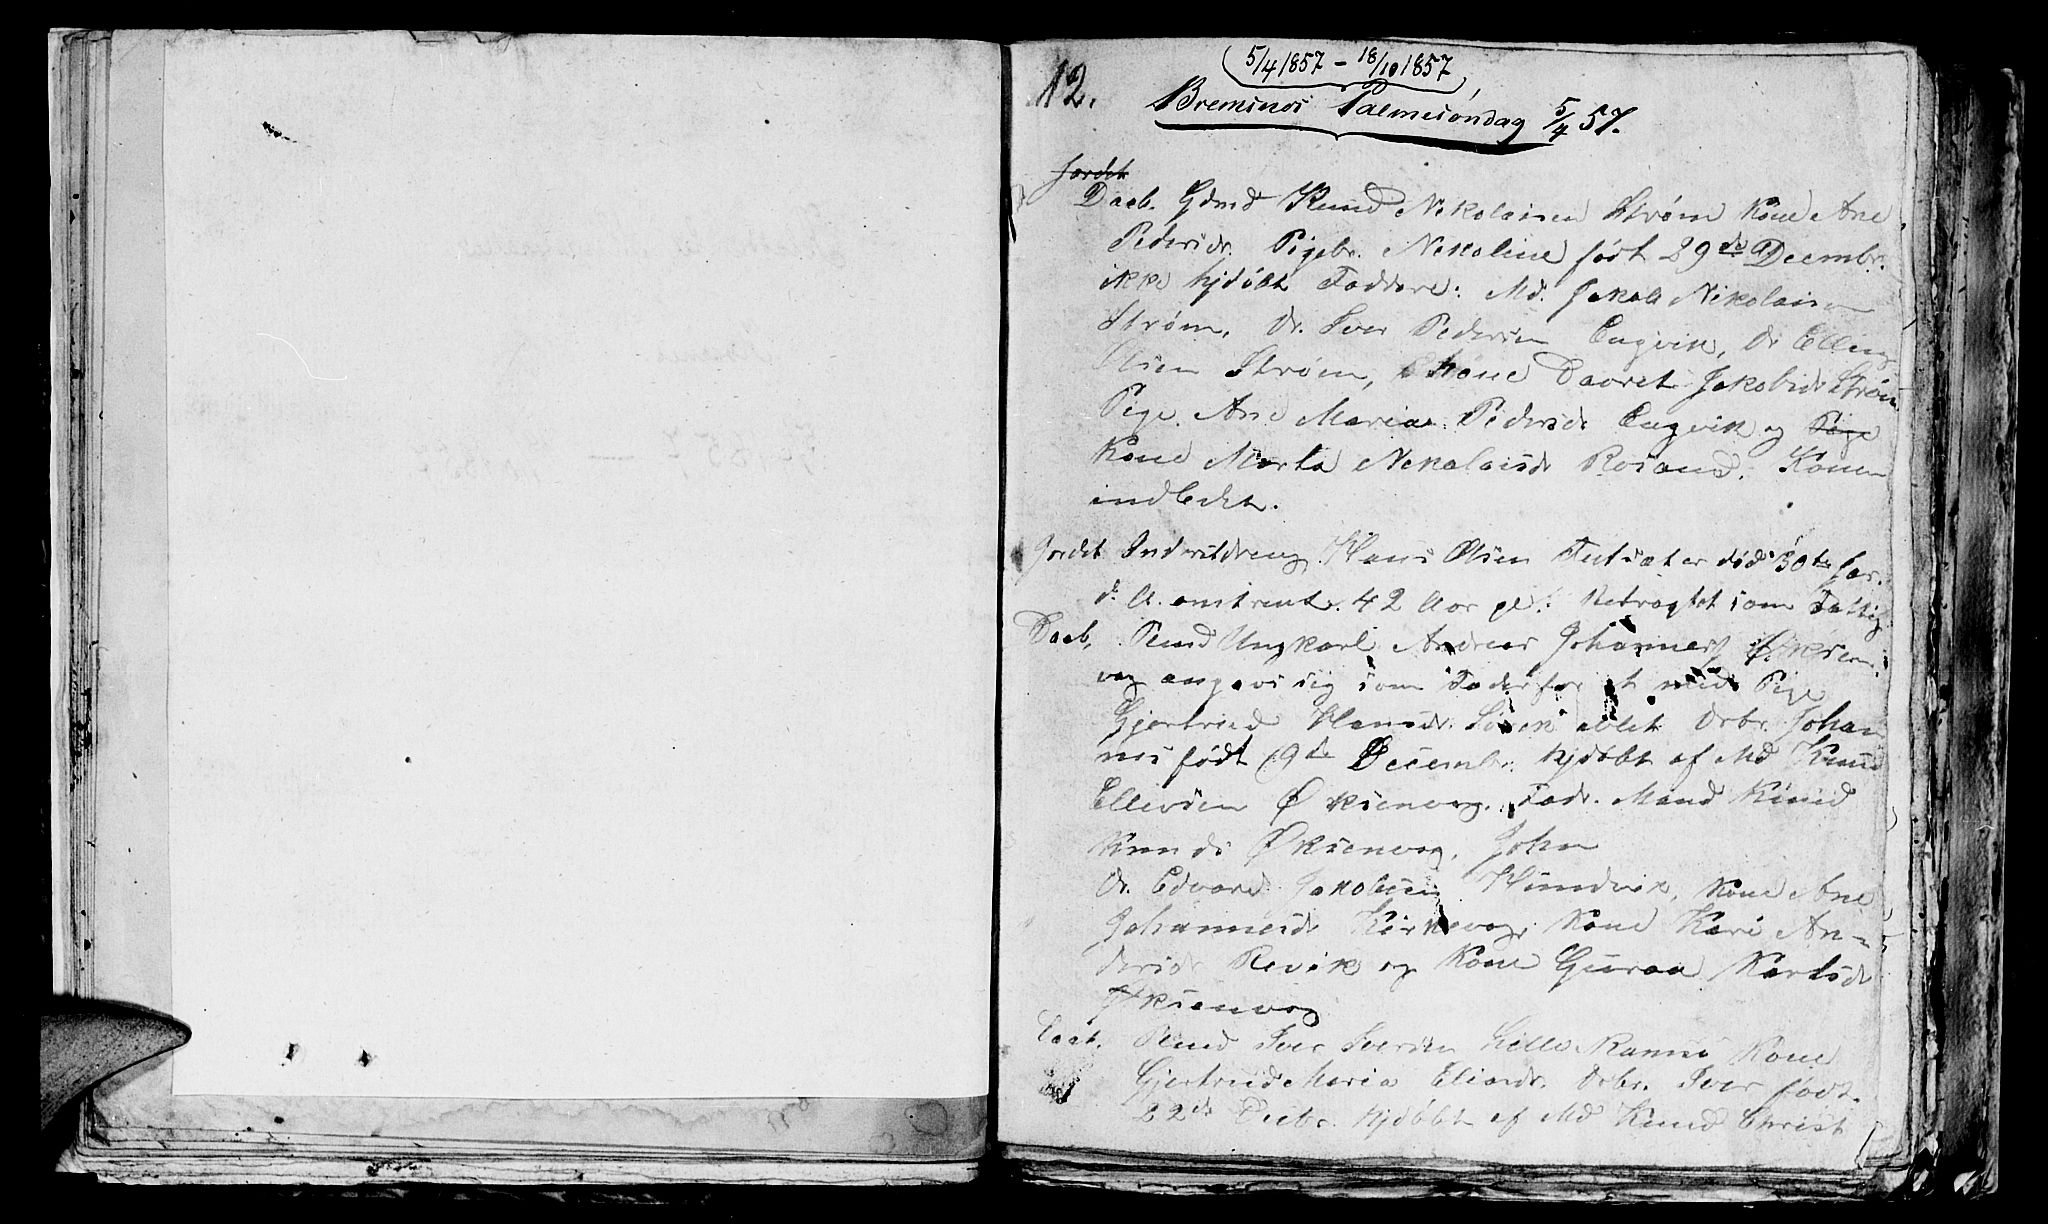 (5/4 1857 – 18/10 1857)
12.
Bremsnes Palmesöndag 5/4 57.
Jordet
Daab. Gdmd Knud Nikolaisen Strøm Kone Ane
Pedersdr. Pigebr. Nekoline født 29de Decembr.
ikke hjdøbt Faddere: Md. Jakob Nikolaisen
Strøm, Do. Iver Pedersen Engvik, Do Elling
Olsen Strøm, Kone Davret Jakobsdr Strøm
Pige Ane Maria Pedersdr Engvik og Pige
Kone Marta Nekolaisdr Rosand. Konen
indledet.
Jordet Inderstdreng Hans Olsen Tutsæter død 30te
d. A. omtrent 42 Aar gl. Betragtet som Fattig
Daab, Rmd Ungkarl Andreas Johannes Øksen-
vag angives sig som Fader for et med Pige
Gjertrud Hansdr. avlet Drbr. Johan
nes født 19de Decembr. hjdøbt af Md Knud
Ellevsen Øksenvag. Fadr. Mand Knud
Knuds Øksenvag, John
Do. Edvard Jakobsen Hundvik, Kone Ane
Johannesdr Kirkevag, Kone Kari An-
dersdr Revik og Kone Guraa Karlsdr
Øksenvag
Daab. Rmd Iver Iversen Lille Ramsø Kone
Gjertrud Maria Eliasdr. Drbr. Iver født
22de Decbr. hjdøbt af Md Knud Christ